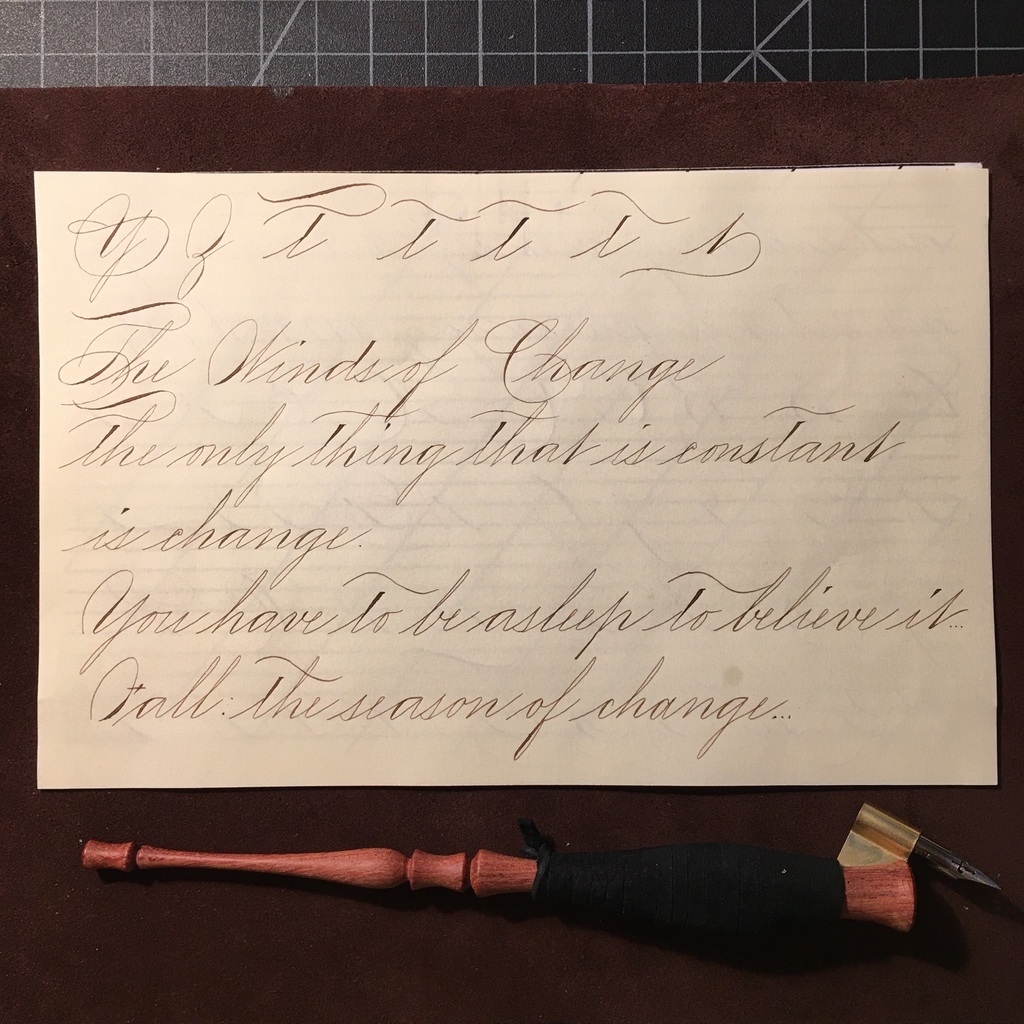 Y Z T T T T t
The Winds of Change
The only thing that is constant
is change.
You have to be asleep to believe it...
Fall: the season of change...